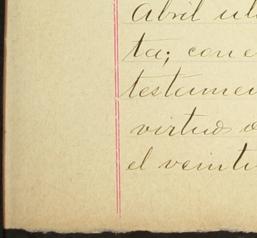 Abril ul
ta; con e
testamen
virtud o
el veinti